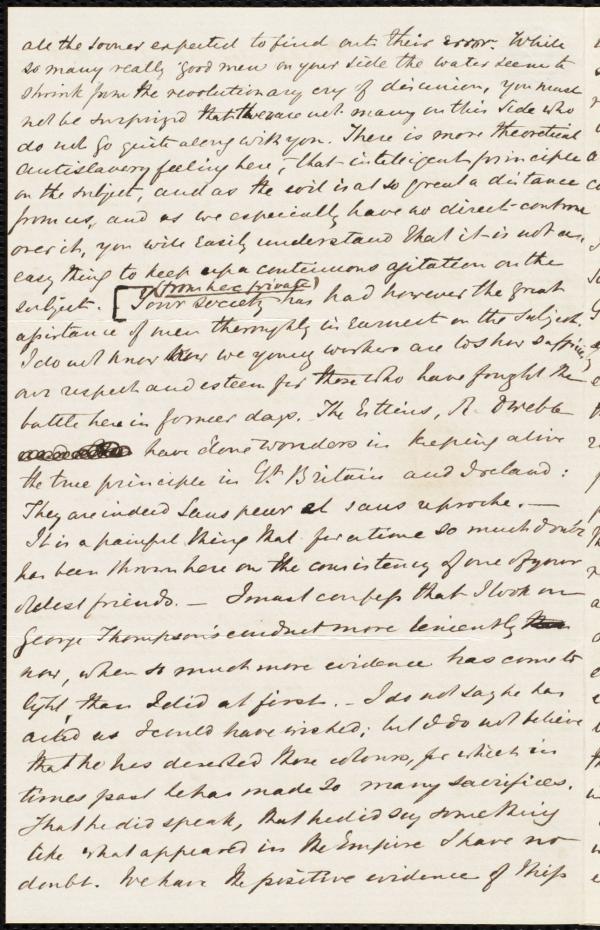 all the sooner expected to find out their error. While
so many really good men on your side the water seem to
shrink from the revolutionary cry of disunion, you must
not be surprized that there are not many on this side who
do not go quite along with you. There is more theoretical
antislavery feeling here, - that intelligent principle
on the subject, and as the evil is at so great a distance
from us, and as we especially have no direct controul
over it, you will easily understand that it is not an
easy thing to keep up a continuous agitation on the
subject. [(from here private)
Our society has had however the great
assistance of men thoroughly in earnest on the subject.
I do not know how we young workers are to show sufficiently
our respect and esteem for those who have fought the
battle here in former days. The Estlins, R. D Webb
have done wonders in keeping alive
the true principle in Gt. Britain and Ireland:
They are indeed sans peur et sans reproche. -
It is a painful thing that for a time so much doubt
has been thrown here on the consistency of one of your
oldest friends. - I must confess that I look on
George Thompson's conduct more leniently
now, when so much more evidence has come to
light, than I did at first. - I do not say he has
acted as I could have wished; but I do not believe
that he has deserted those colours, for which in
times past he has made so many sacrifices.
That he did speak, that he did say something
like what appeared in the Empire I have no
doubt. We have the positive evidence of Miss